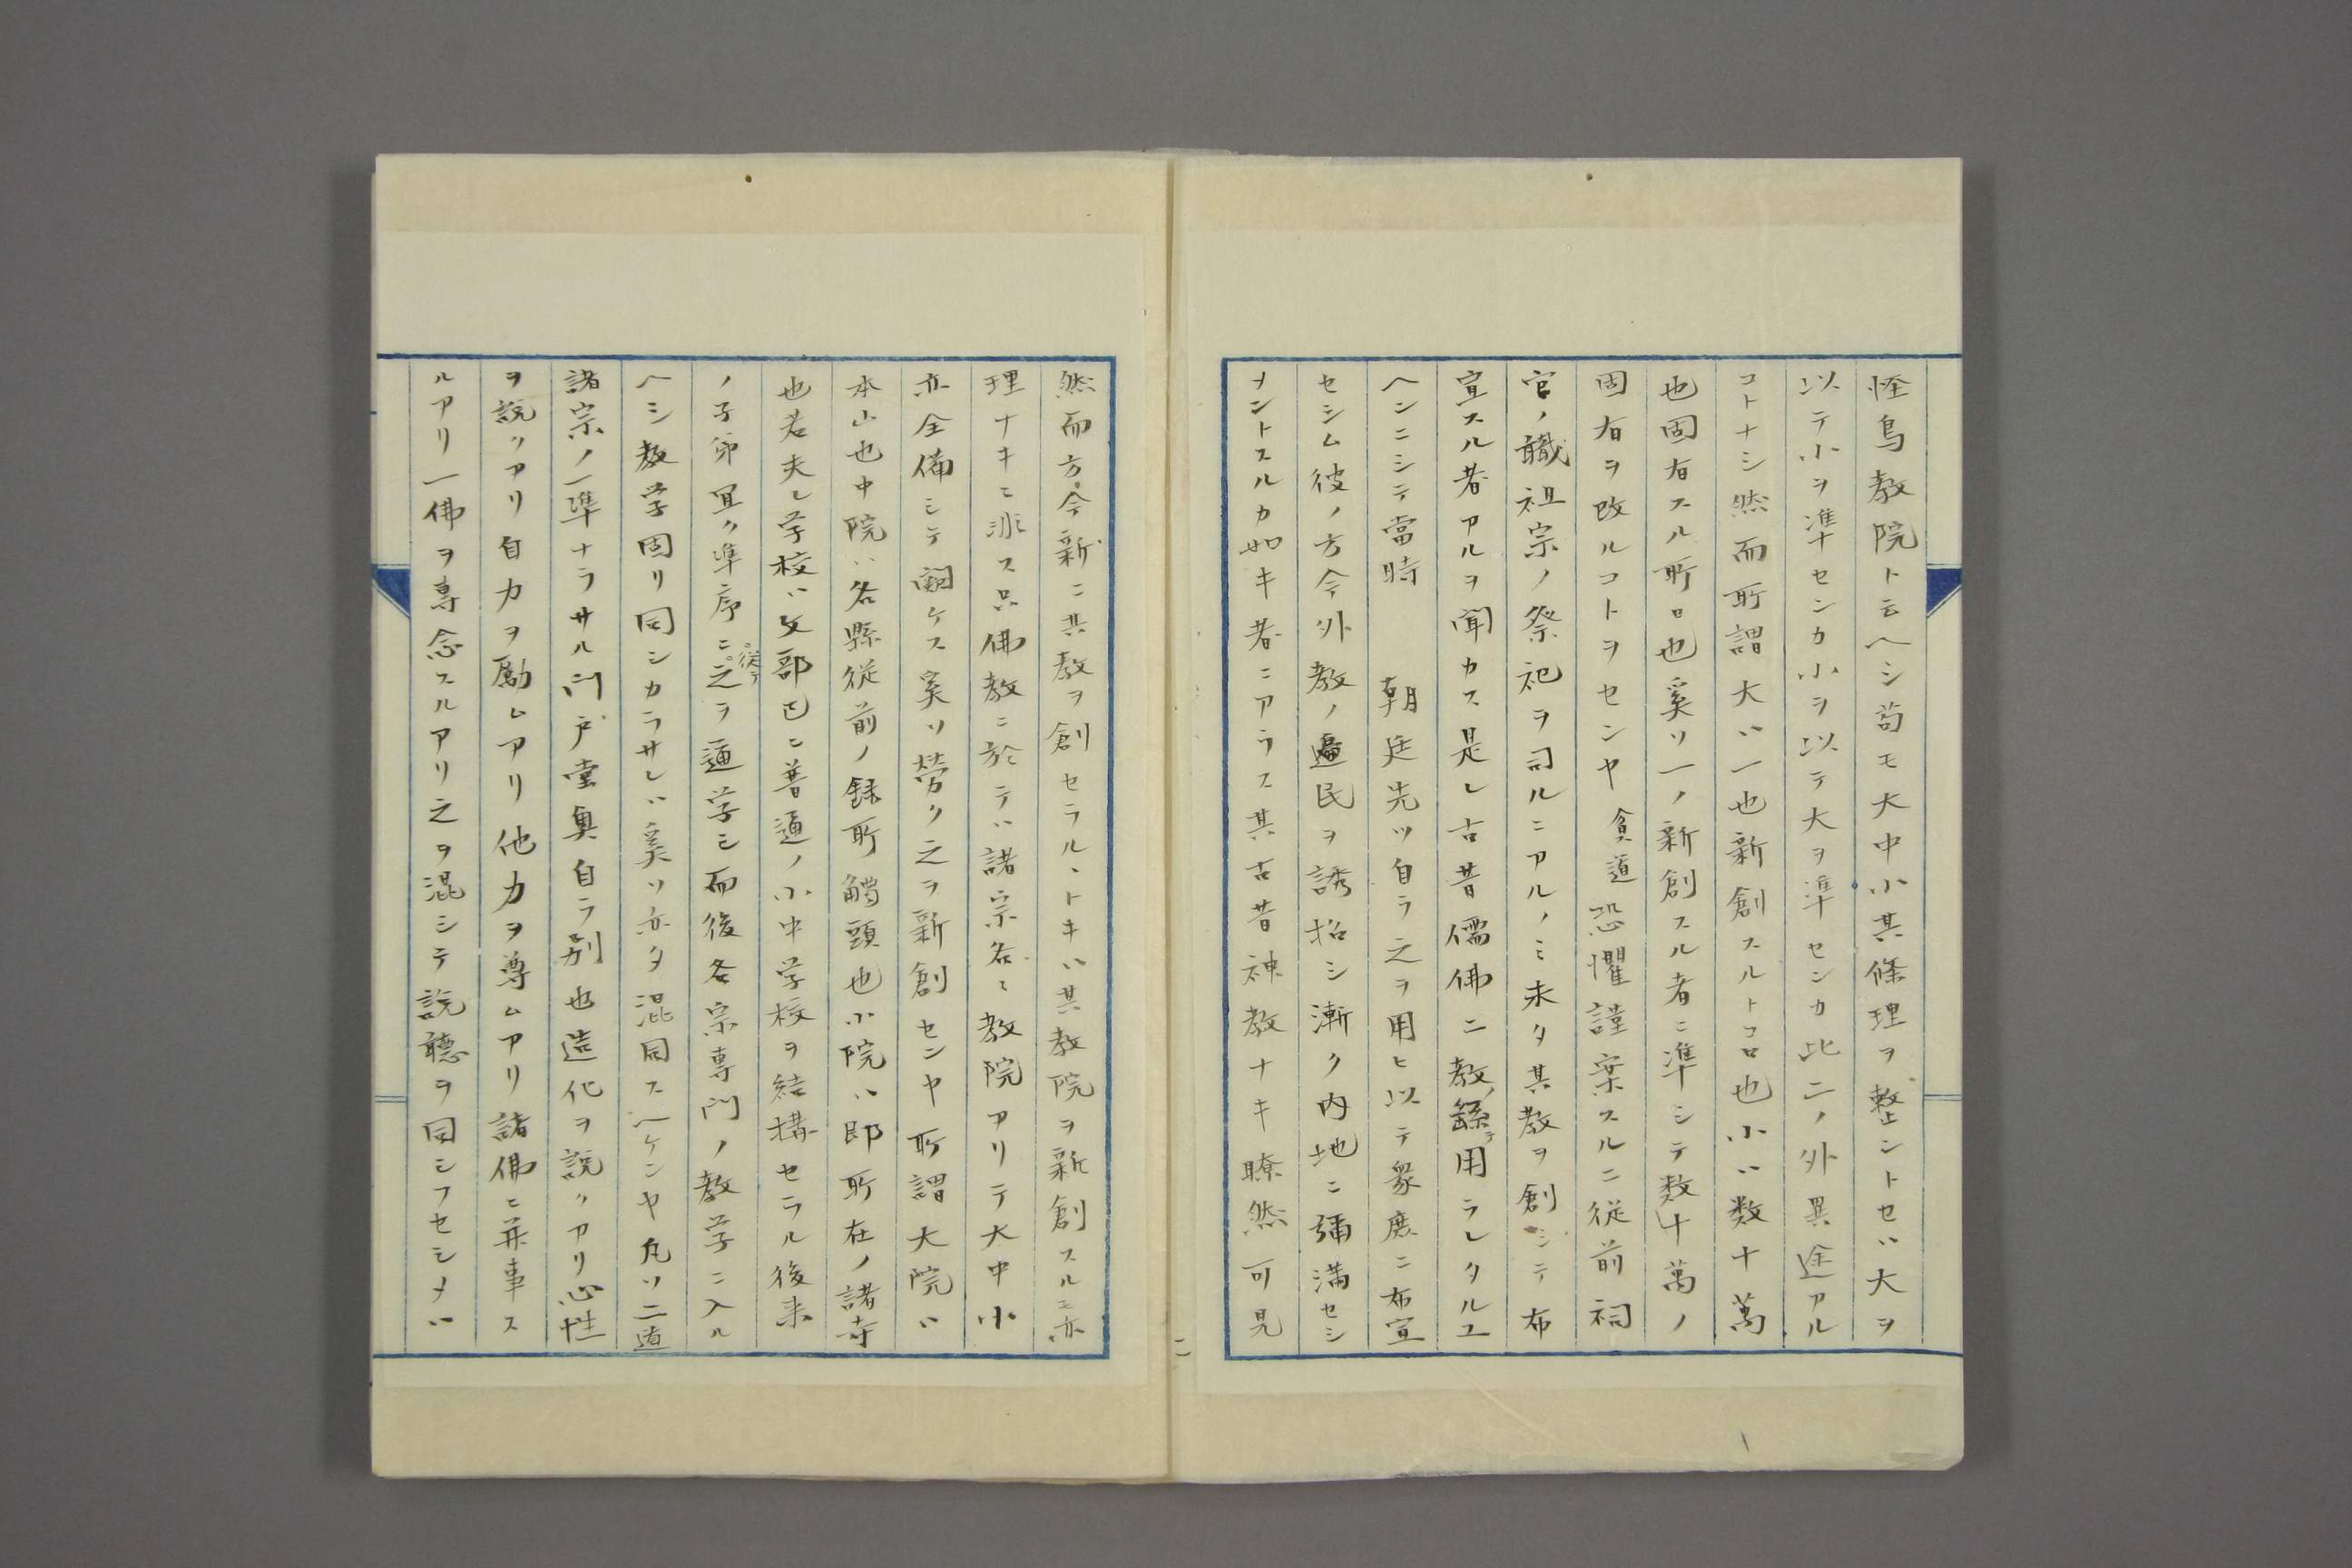 怪鳥教院ト云ヘシ苟モ大中小其條理ヲ整ントセハ大ヲ
以テ小ヲ準センカ小ヲ以テ大ヲ準センカ此二ノ外異途アル
コトナシ然而所謂大ハ一也新創スルトコロ也小ハ数十萬
也固有スル所ロ也奚ソ一ノ新創スル者ニ準シテ数十萬ノ
固有ヲ改ルコトヲセンヤ貧道恐懼謹案スルニ従前祠
官ノ職祖宗ノ祭祀ヲ司ルニアルノミ未タ其教ヲ創シテ布
宣スル者アルヲ聞カス是レ古昔儒佛ニ教ノ繇テ用ラレタルユ
ヘンニシテ當時　朝廷先ツ自ラ之ヲ用ヒ以テ衆庶ニ布宣
セシム彼ノ方今外教ノ邊民ヲ誘招シ漸ク内地ニ彌満セシ
メントスルカ如キ者ニアラス其古昔神教ナキ瞭然可見
然而方今新ニ其教ヲ創セラル丶トキハ其教院ヲ新創スルモ亦
理ナキニ非ス只佛教ニ於テハ諸宗各々教院アリテ大中小
亦全備シテ闕ケス奚ソ勞ク之ヲ新創センヤ所謂大院ハ
本山也中院ハ各縣従前ノ録所觸頭也小院ハ即所在ノ諸寺
也若夫レ学校ハ文部已ニ普通ノ小中学校ヲ結構セラル後来
ノ子弟宜ク準序ニ従テ之ヲ通学シ而後各宗専門ノ教学ニ入ル
ヘシ教学固リ同シカラサレハ奚ソ亦タ混同スヘケンヤ凡ソ二道
諸宗ノ一準ナラサル門戸堂奥自ラ別也造化ヲ説クアリ心性
ヲ説クアリ自力ヲ勵ムアリ他力ヲ尊ムアリ諸佛ニ并事ス
ルアリ一佛ヲ専念スルアリ之ヲ混シテ説聴ヲ同シフセシメハ
二